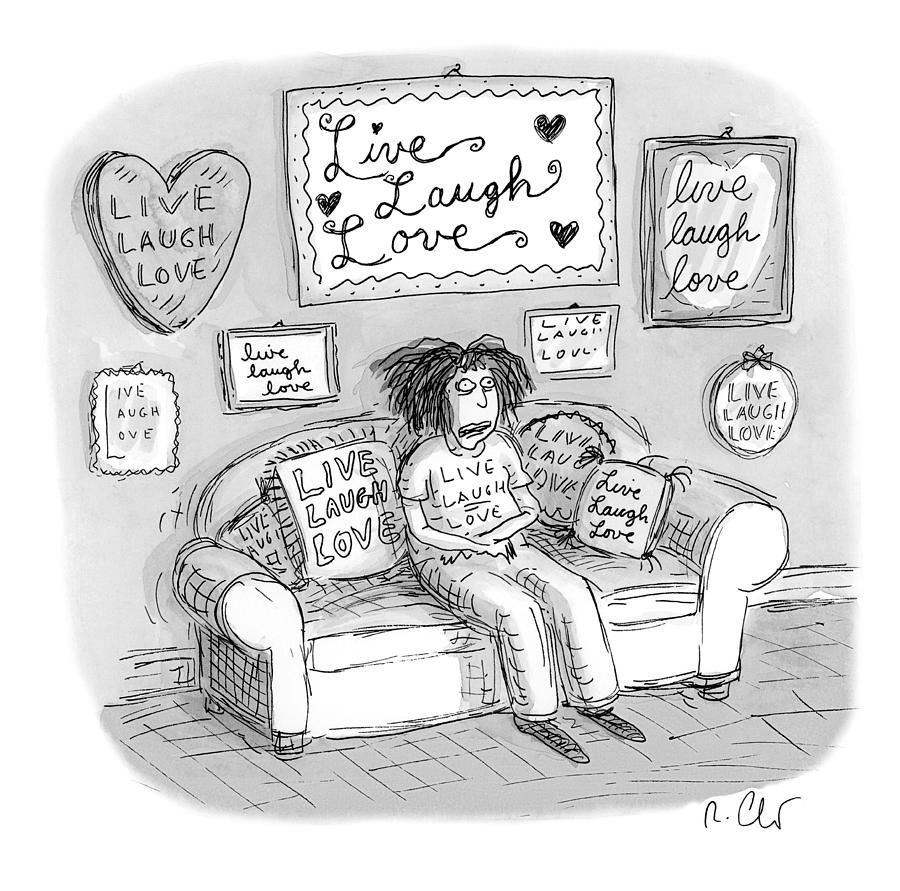 Live
Laugh
Love
LIVE
LAUGH
LOVE
live
laugh
love
live
laugh
love
LIVE
LAUGH
LOVE
LIVE
LAUGH
LOVE
LIVE
LAUGH
LOVE
LIVE
LAUGH
LOVE
LIVE
LAUGH
LOVE
LIVE
LAU
OVE
Live
Laugh
Love
LIVE
LAUGH
R. Ch